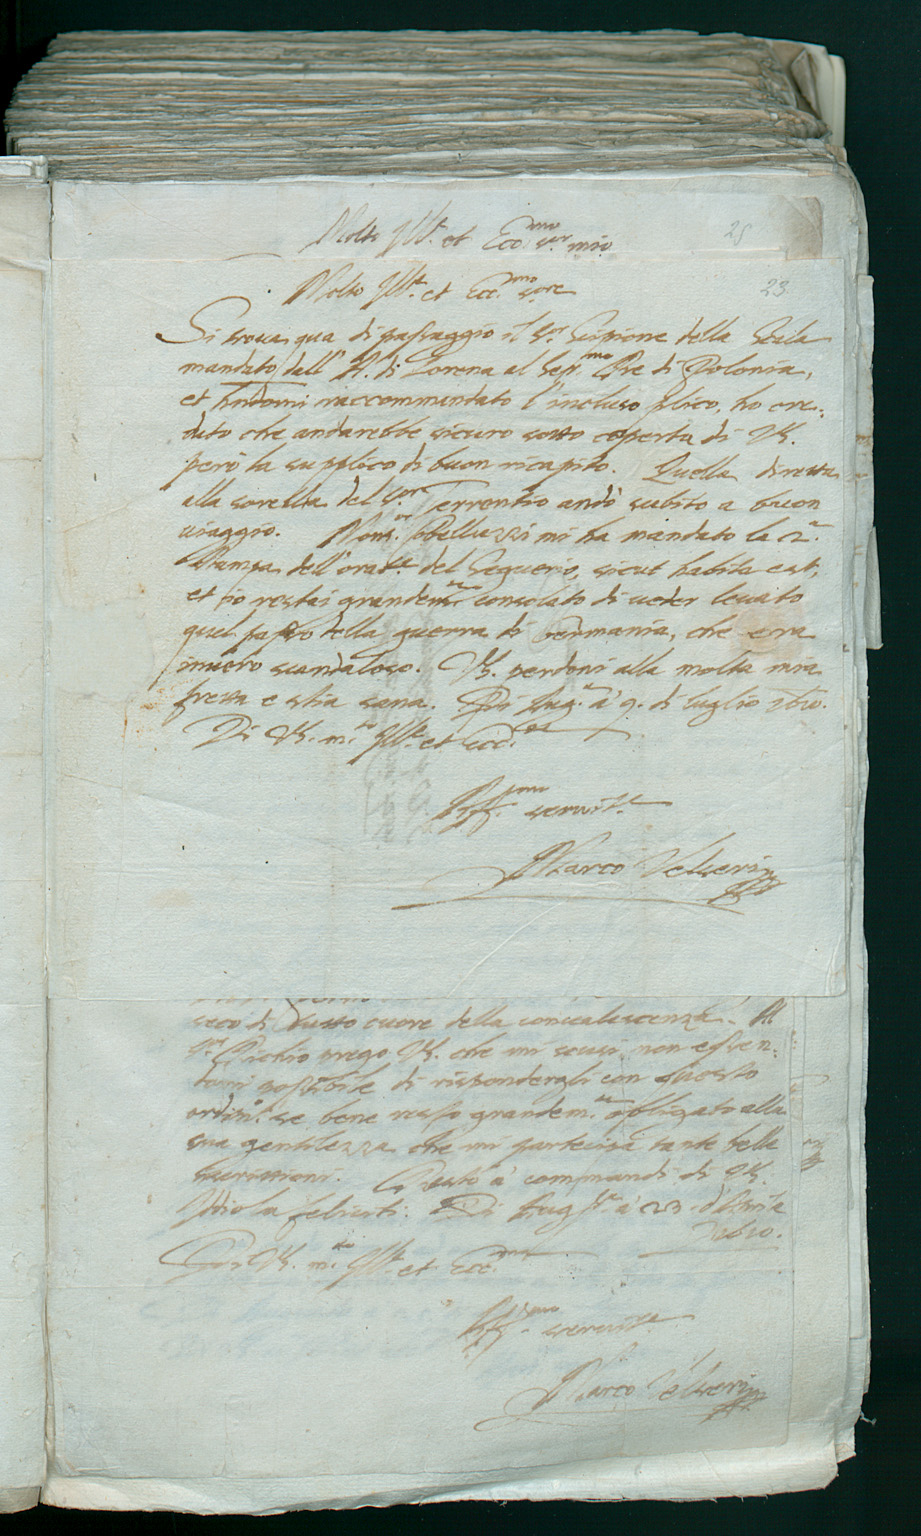 Molto Ill.e et Ecc.mo S.or mio
25
Molto Ill.e et Ecc.mo S.ore
23
Si trova qua di passaggio il S.or Scipione della Scala
mandato dall' A. di Lorena al Ser.mo Re di Polonia,
et havendomi raccommandato l'incluso plico, ho cre-
duto che andarebbe sicuro sotto coperta di VS.
però la supplico di buon ricapito. Quella diretta
alla sorella del S.or Terrentio andò subito a buon
viaggio. Mons.or Belluzzi mi ha mandato la 2.a
stampa dell' orat.ne del Seguerio, sicut habita est,
et io restai grandem.te consolato di veder levato
quel passo della guerra di Germania, che era
invero scandaloso. VS. perdoni alla molta mia
frezza e stia sana. Di Aug.a a' 9. di luglio 1610.
Di VS. m.to Ill.e et Ecc.ma
Aff.mo servit.e
Marco Velseri
seco di tutto cuore della convalescenza. Al
S.or Pichio prego VS. che mi scusi, non essen-
domi possibile di rispondergli con questo
ordin.o se bene resto grandem.te obbligato alla
sua gentilezza che mi partecipa tante belle
Inscrittioni. Resto a' commandi di VS.
Iddio la feliciti. Di Aug.ta a' 23. d'Aprile
1610.
Di VS. m.to Ill.e et Ecc.ma
Aff.mo servit.e
Marco Velseri